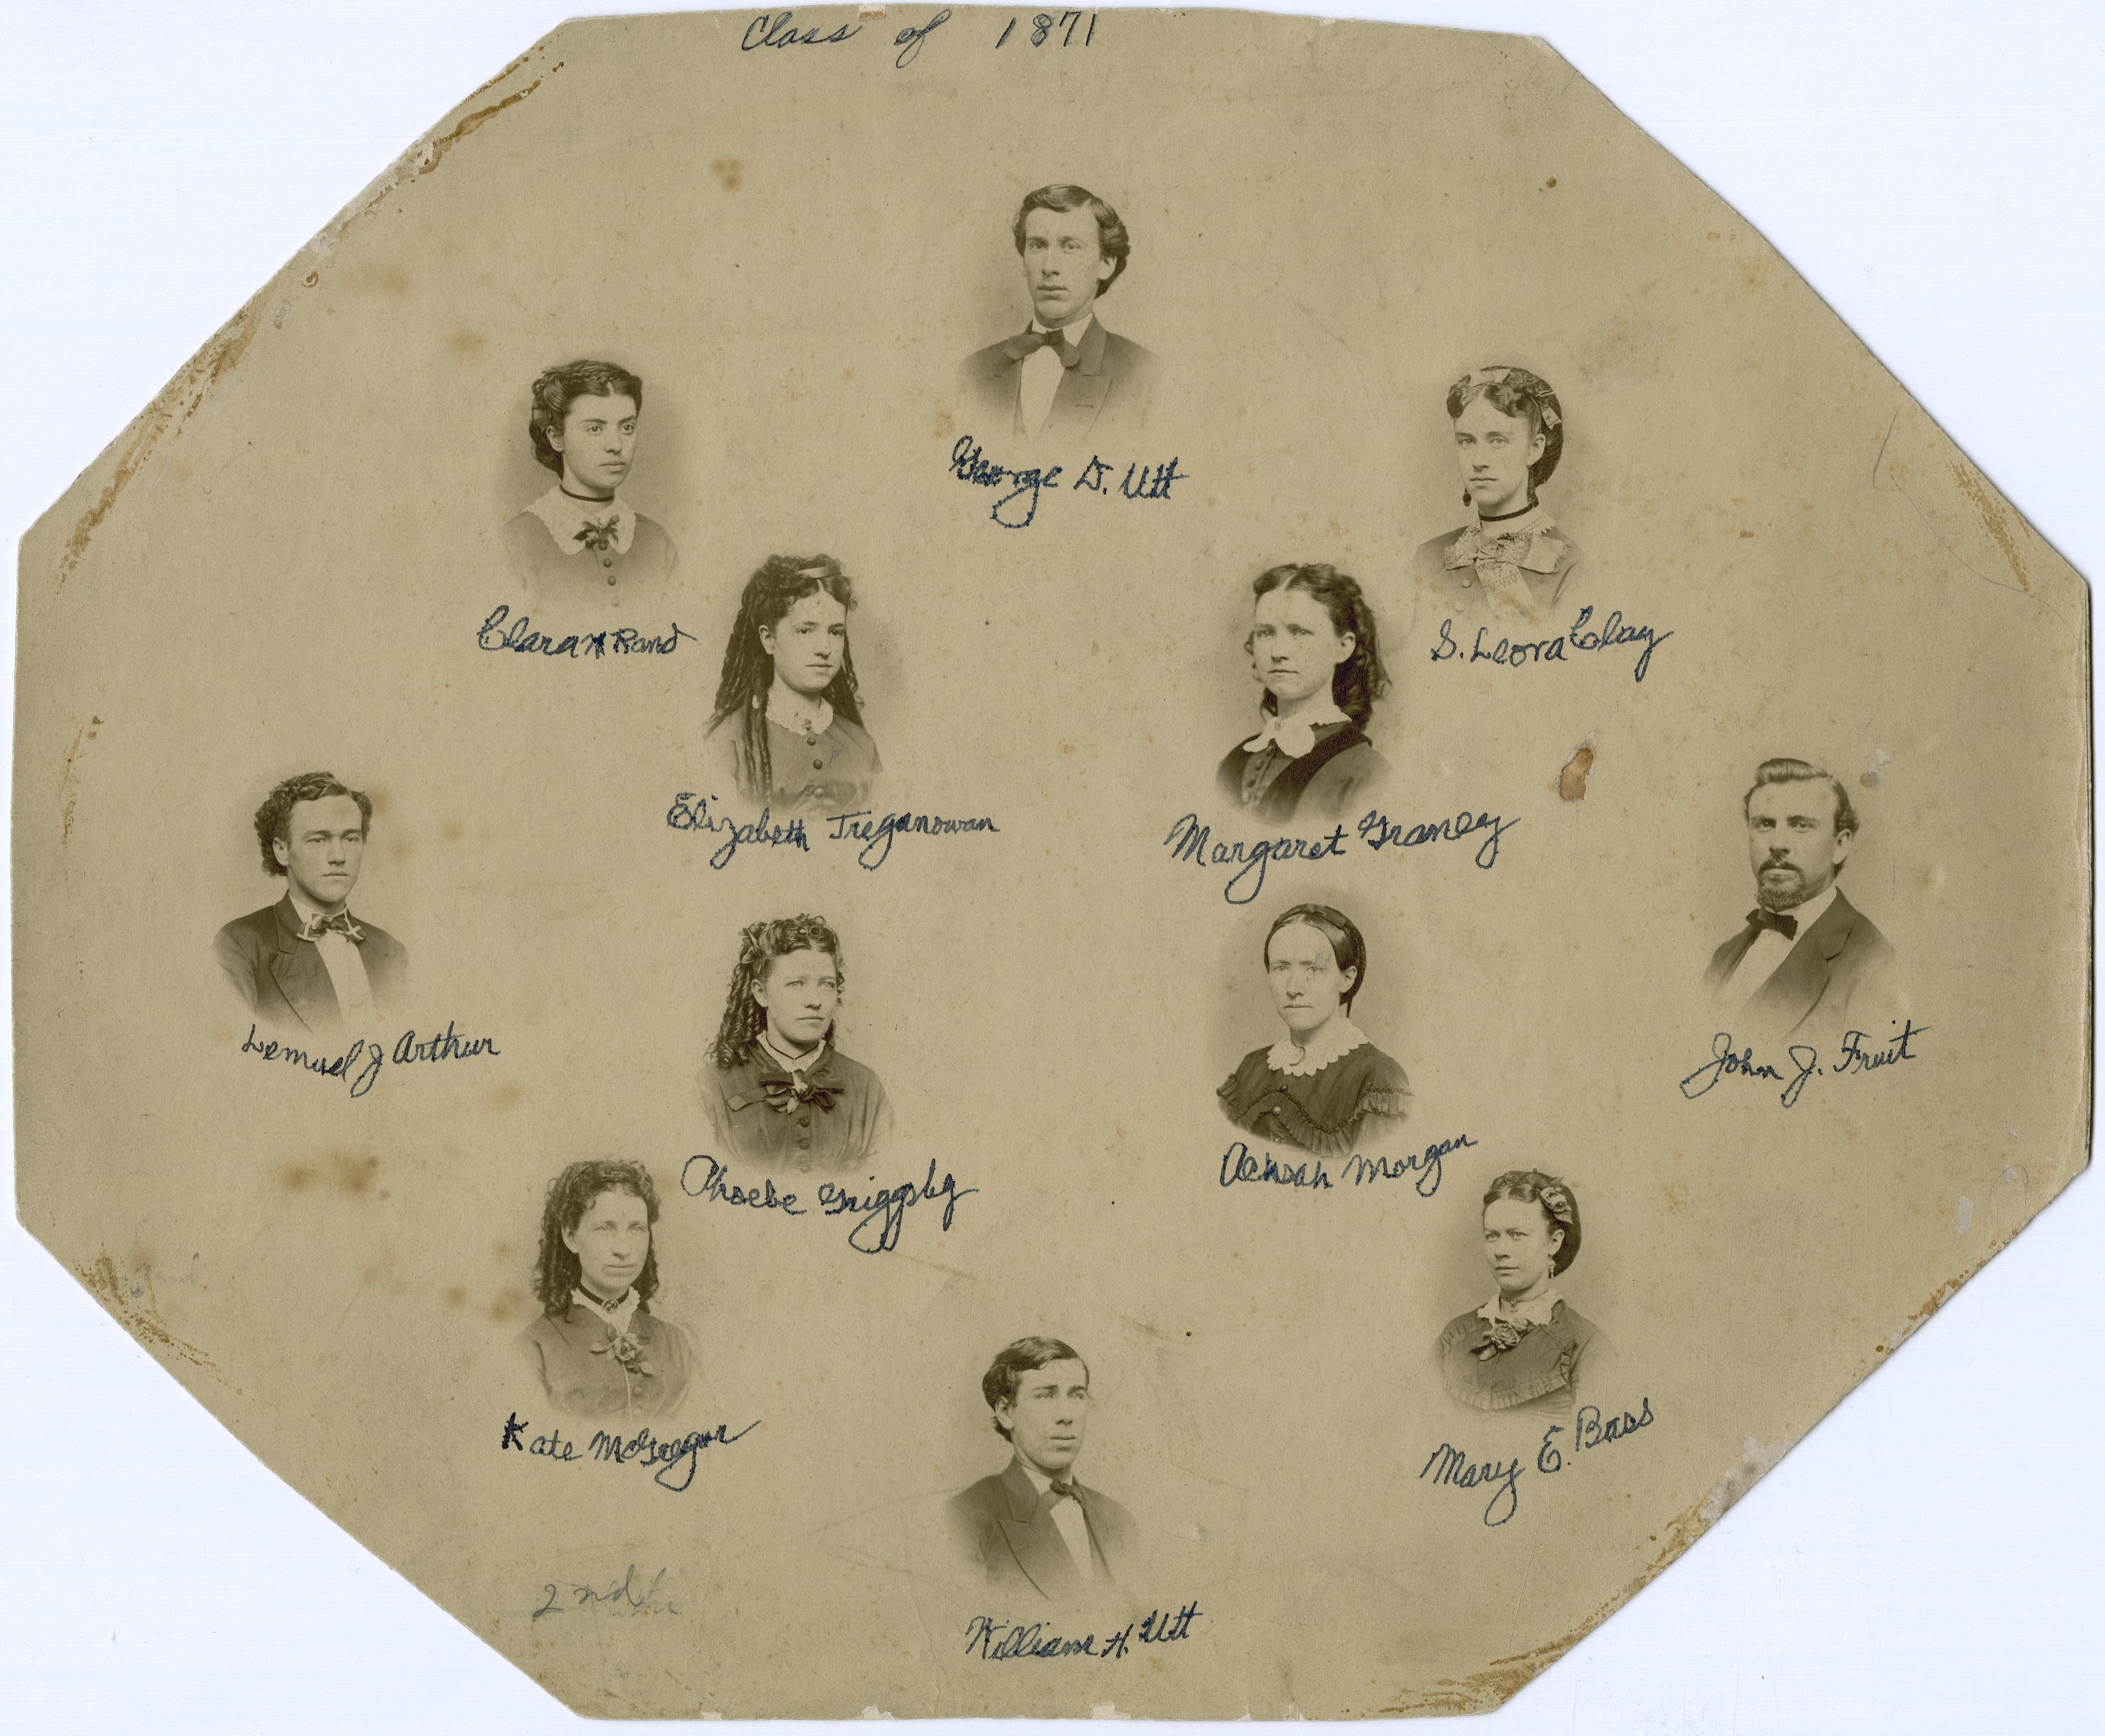 Class of 1871
George D. Utt
Clara H Rand
S. Leora Clay
Elizabeth Treganowan
Margaret Graney
Lemuel J Arthur
John J. Fruit
Phoebe Griggsby
Achsah Morgan
Kate McGregor
Mary E. Bass
2nd
William H. Utt